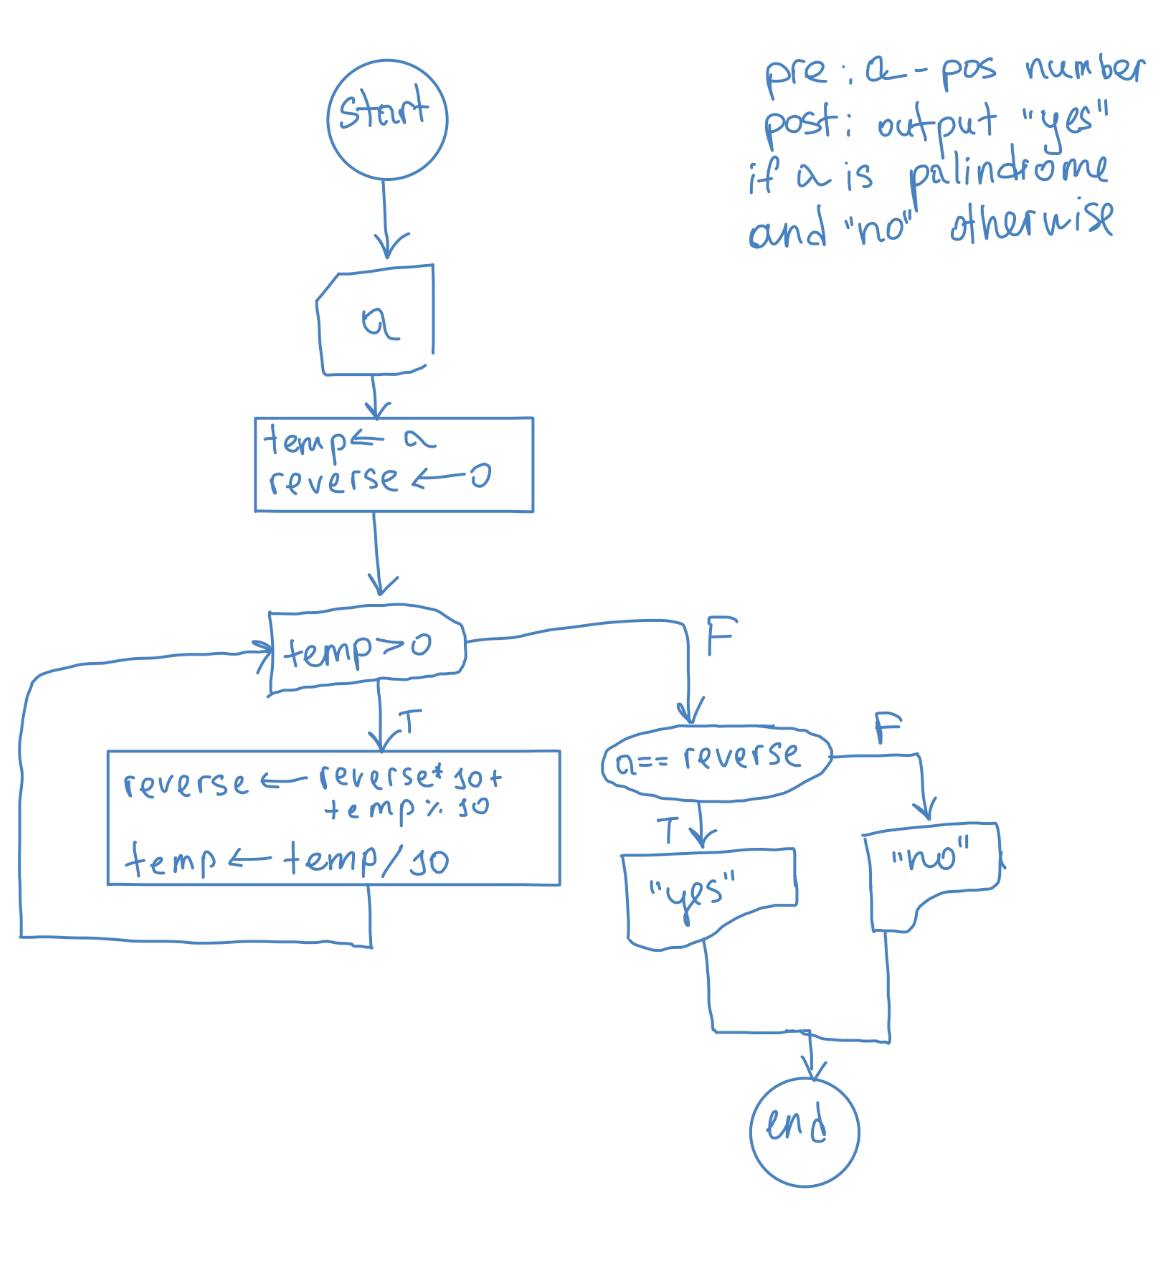 start
pre: a - pos number
post: output "yes"
if a is palindrome
and "no" otherwise
a
temp ← a
reverse ← 0
temp > 0
F
T
reverse ← reverse * 10 +
temp % 10
temp ← temp / 10
a == reverse
F
T
"yes"
"no"
end